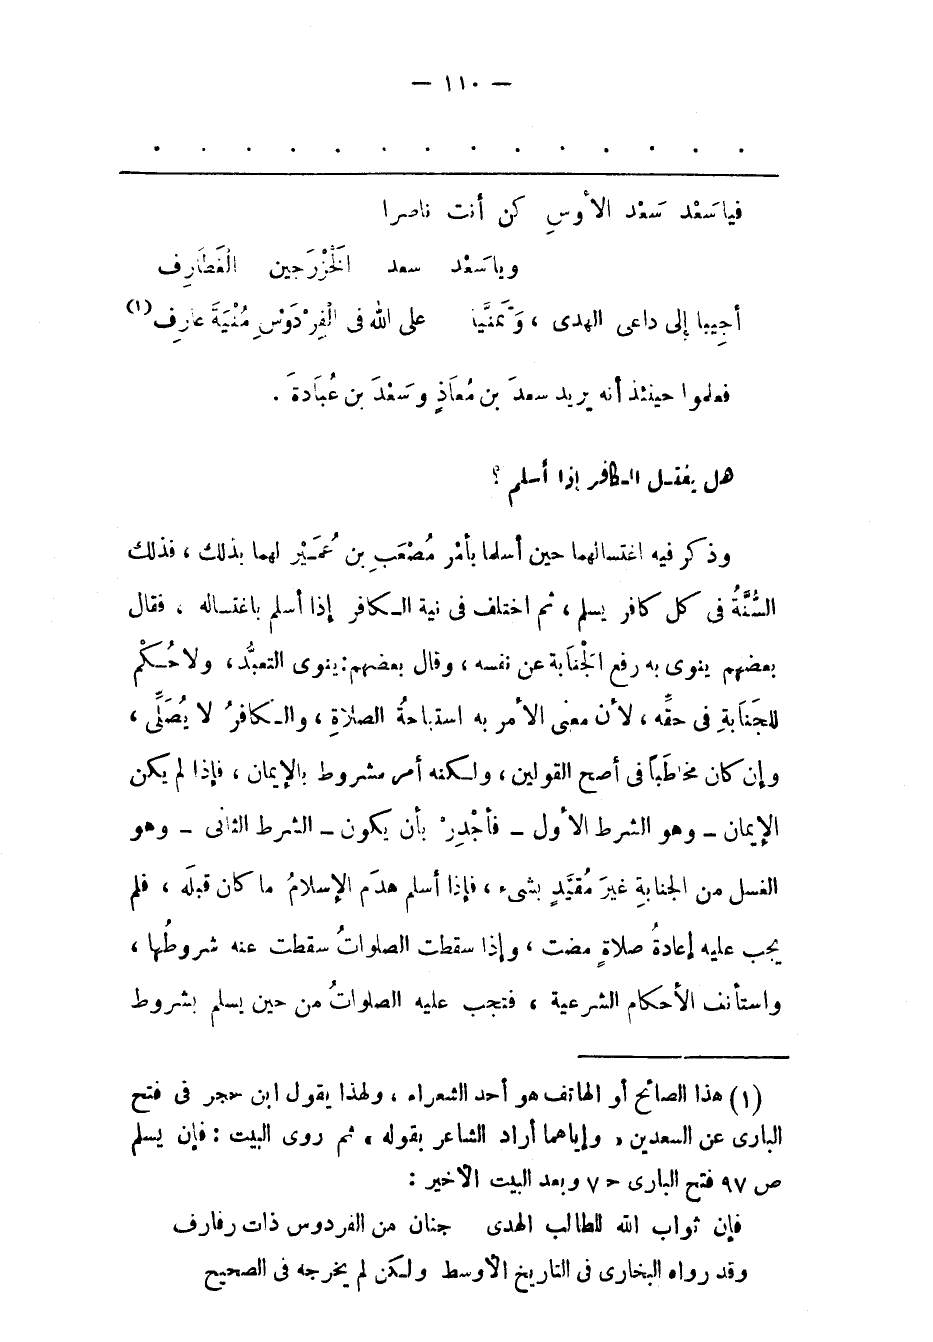 — ١١٠ —
. . . . . . . . . . . . . .
فيا سَعْد سَعْد الأوسِ كن أنت ناصرا
ويا سَعْد سعد الْخَزْرَجين الْغَطَارِف
أجِيبا إلى داعى الهدى ، وَتَمَنَّيا على الله فى الْفِرْدَوْسِ مُنْيَةَ عارِف (١)
فعلموا حينئذ أنه يريد سعدَ بن مُعَاذٍ وسَعْدَ بن عُبَادةَ .
هل يغتسل الكافر إذا أسلم ؟
وذكر فيه اغتسالهما حين أسلما بأمْر مُصْعَبِ بن عُمَيْر لهما بذلك ، فذلك
السُّنَّةُ فى كل كافر يسلم ، ثم اختلف فى نية الكافر إذا أسلم باغتساله ، فقال
بعضهم ينوى به رفع الْجَنَابَة عن نفسه ، وقال بعضهم : ينوى التعبُّد ، ولا حُكْم
للجَنَابَةِ فى حقِّه ، لأن معنى الأمر به استباحةُ الصلاةِ ، والكافرُ لا يُصَلِّى ،
وإن كان مخاطَباً فى أصح القولين ، ولكنه أمر مشروط بالإيمان ، فإذا لم يكن
الإيمان – وهو الشرط الأول – فأجْدِرْ بأن يكون – الشرط الثانى – وهو
الغسل من الجنابةِ غيرَ مُقيَّدٍ بشىء ، فإذا أسلم هدَم الإسلامُ ما كان قبلَه ، فلم
يجب عليه إعادةُ صلاةٍ مضت ، وإذا سقطت الصلواتُ سقطت عنه شروطُها ،
واستأنف الأحكام الشرعية ، فتجب عليه الصلواتُ من حين يسلم بشروط
(١) هذا الصائح أو الهاتف هو أحد الشعراء ، ولهذا يقول ابن حجر فى فتح
البارى عن السعدين ، وإياهما أراد الشاعر بقوله ، ثم روى البيت : فإن يسلم
ص ٩٧ فتح البارى ح ٧ وبعد البيت الأخير :
فإن ثواب الله للطالب الهدى جنان من الفردوس ذات رفارف
وقد رواه البخارى فى التاريخ الأوسط ولكن لم يخرجه فى الصحيح